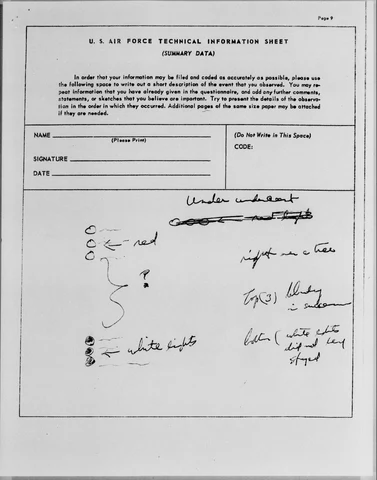 Page 9
U. S. AIR FORCE TECHNICAL INFORMATION SHEET
(SUMMARY DATA)
In order that your information may be filed and coded as accurately as possible, please use
the following space to write out a short description of the event that you observed. You may re-
peat information that you have already given in the questionnaire, and add any further comments,
statements, or sketches that you believe are important. Try to present the details of the observa-
tion in the order in which they occurred. Additional pages of the same size paper may be attached
if they are needed.
NAME
(Please Print)
SIGNATURE
DATE
(Do Not Write in This Space)
CODE:
Under
red
right over a tree
?
top (3)
in
white lights
white lights
did not
stayed